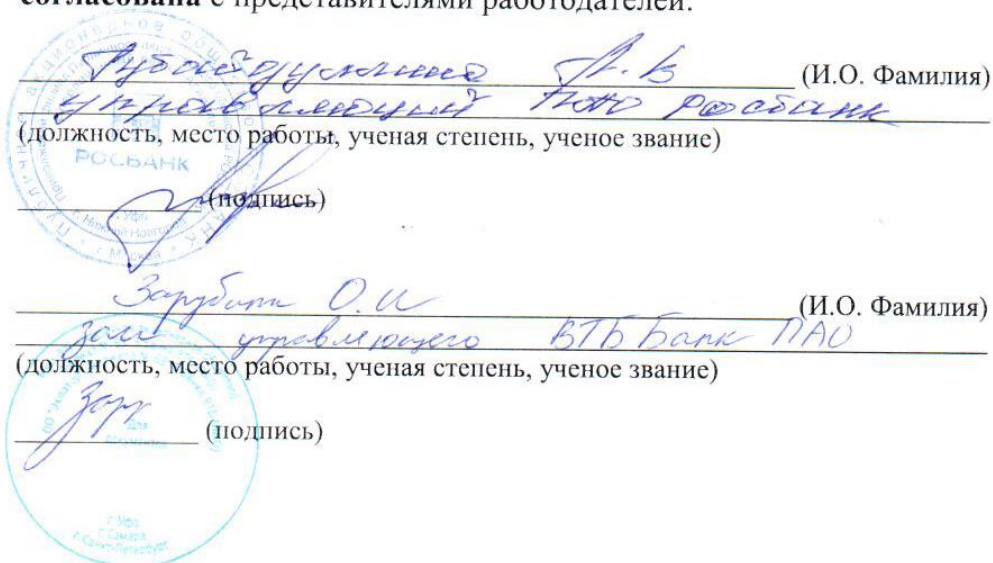 согласована с представителями работодателей:
Губайдуллина А.В (И.О. Фамилия)
управляющий ПАО Росбанк
(должность, место работы, ученая степень, ученое звание)
РОСБАНК
(подпись)
г. Уфа
г. Нижний Новгород
г. Москва
О.И (И.О. Фамилия)
зам управляющего ВТБ Банк ПАО
(должность, место работы, ученая степень, ученое звание)
(подпись)
Для
документов
г. Уфа
г. Самара
г. Санкт-Петербург